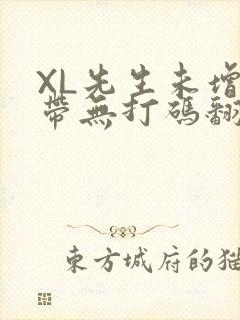 XL先生未增
帶無打碼翻
東方城府的猫